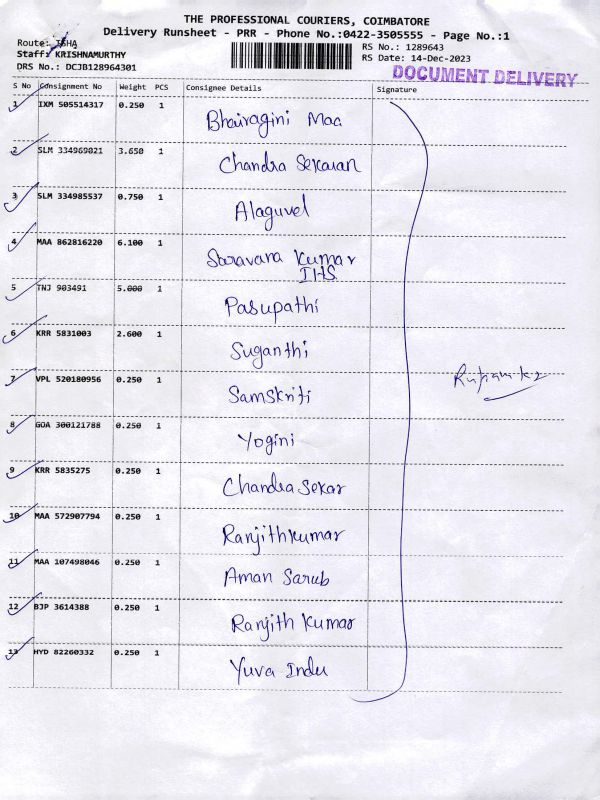 THE PROFESSIONAL COURIERS, COIMBATORE
Delivery Runsheet - PRR - Phone No.:0422-3505555 - Page No.:1
Route: ISHA
RS No.: 1289643
Staff: KRISHNAMURTHY
RS Date: 14-Dec-2023
DRS No.: DCJB128964301
DOCUMENT DELIVERY
S No Consignment No Weight PCS Consignee Details Signature
1 IXM 505514317 0.250 1 Bhairagini Maa
2 SLM 334969021 3.650 1 Chandra Sekaran
3 SLM 334985537 0.750 1 Alaguvel
4 MAA 862816220 6.100 1 Saravana Kumar
IHS.
5 TNJ 903491 5.000 1 Pasupathi
6 KRR 5831003 2.600 1 Suganthi
7 VPL 520180956 0.250 1 Samskriti
8 GOA 300121788 0.250 1 Yogini
9 KRR 5835275 0.250 1 Chandra Sekar
10 MAA 572907794 0.250 1 Ranjithkumar
11 MAA 107498046 0.250 1 Aman Sarub
12 BJP 3614388 0.250 1 Ranjith Kumar
13 HYD 82260332 0.250 1 Yuva Indu